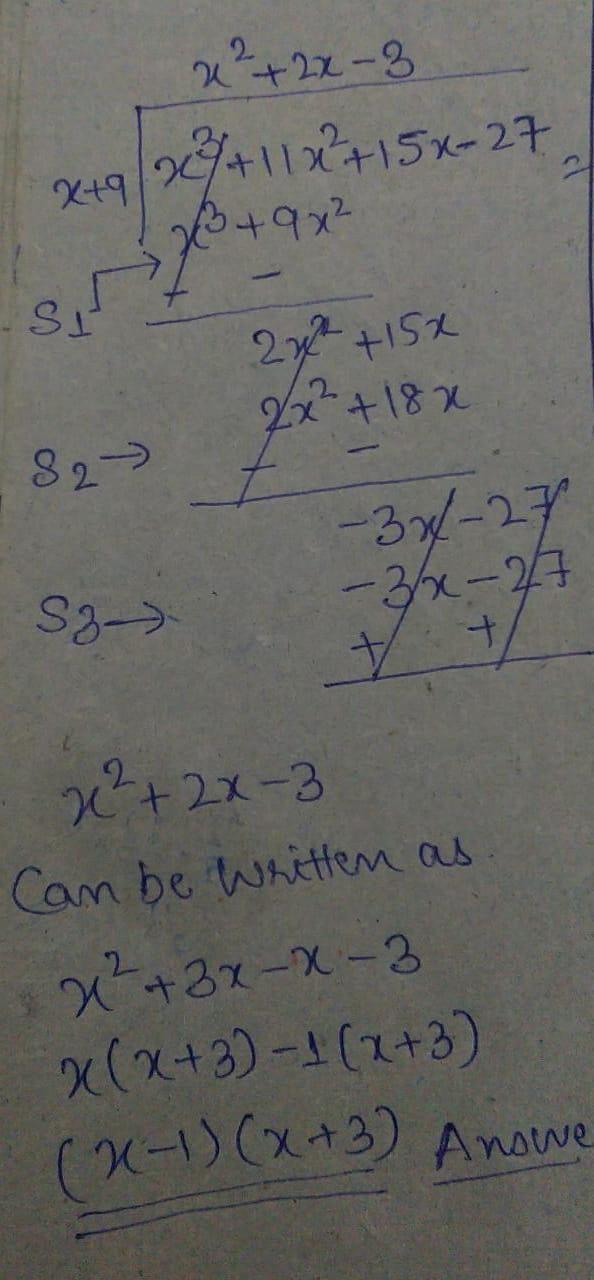 x²+2x-3
x+9 x³+11x²+15x-27 =
x³+9x²
S1 → - -
2x²+15x
2x²+18x
S2 → - -
-3x-27
-3x-27
S3 → + +
x²+2x-3
Can be written as
x²+3x-x-3
x(x+3)-1(x+3)
(x-1)(x+3) Answe